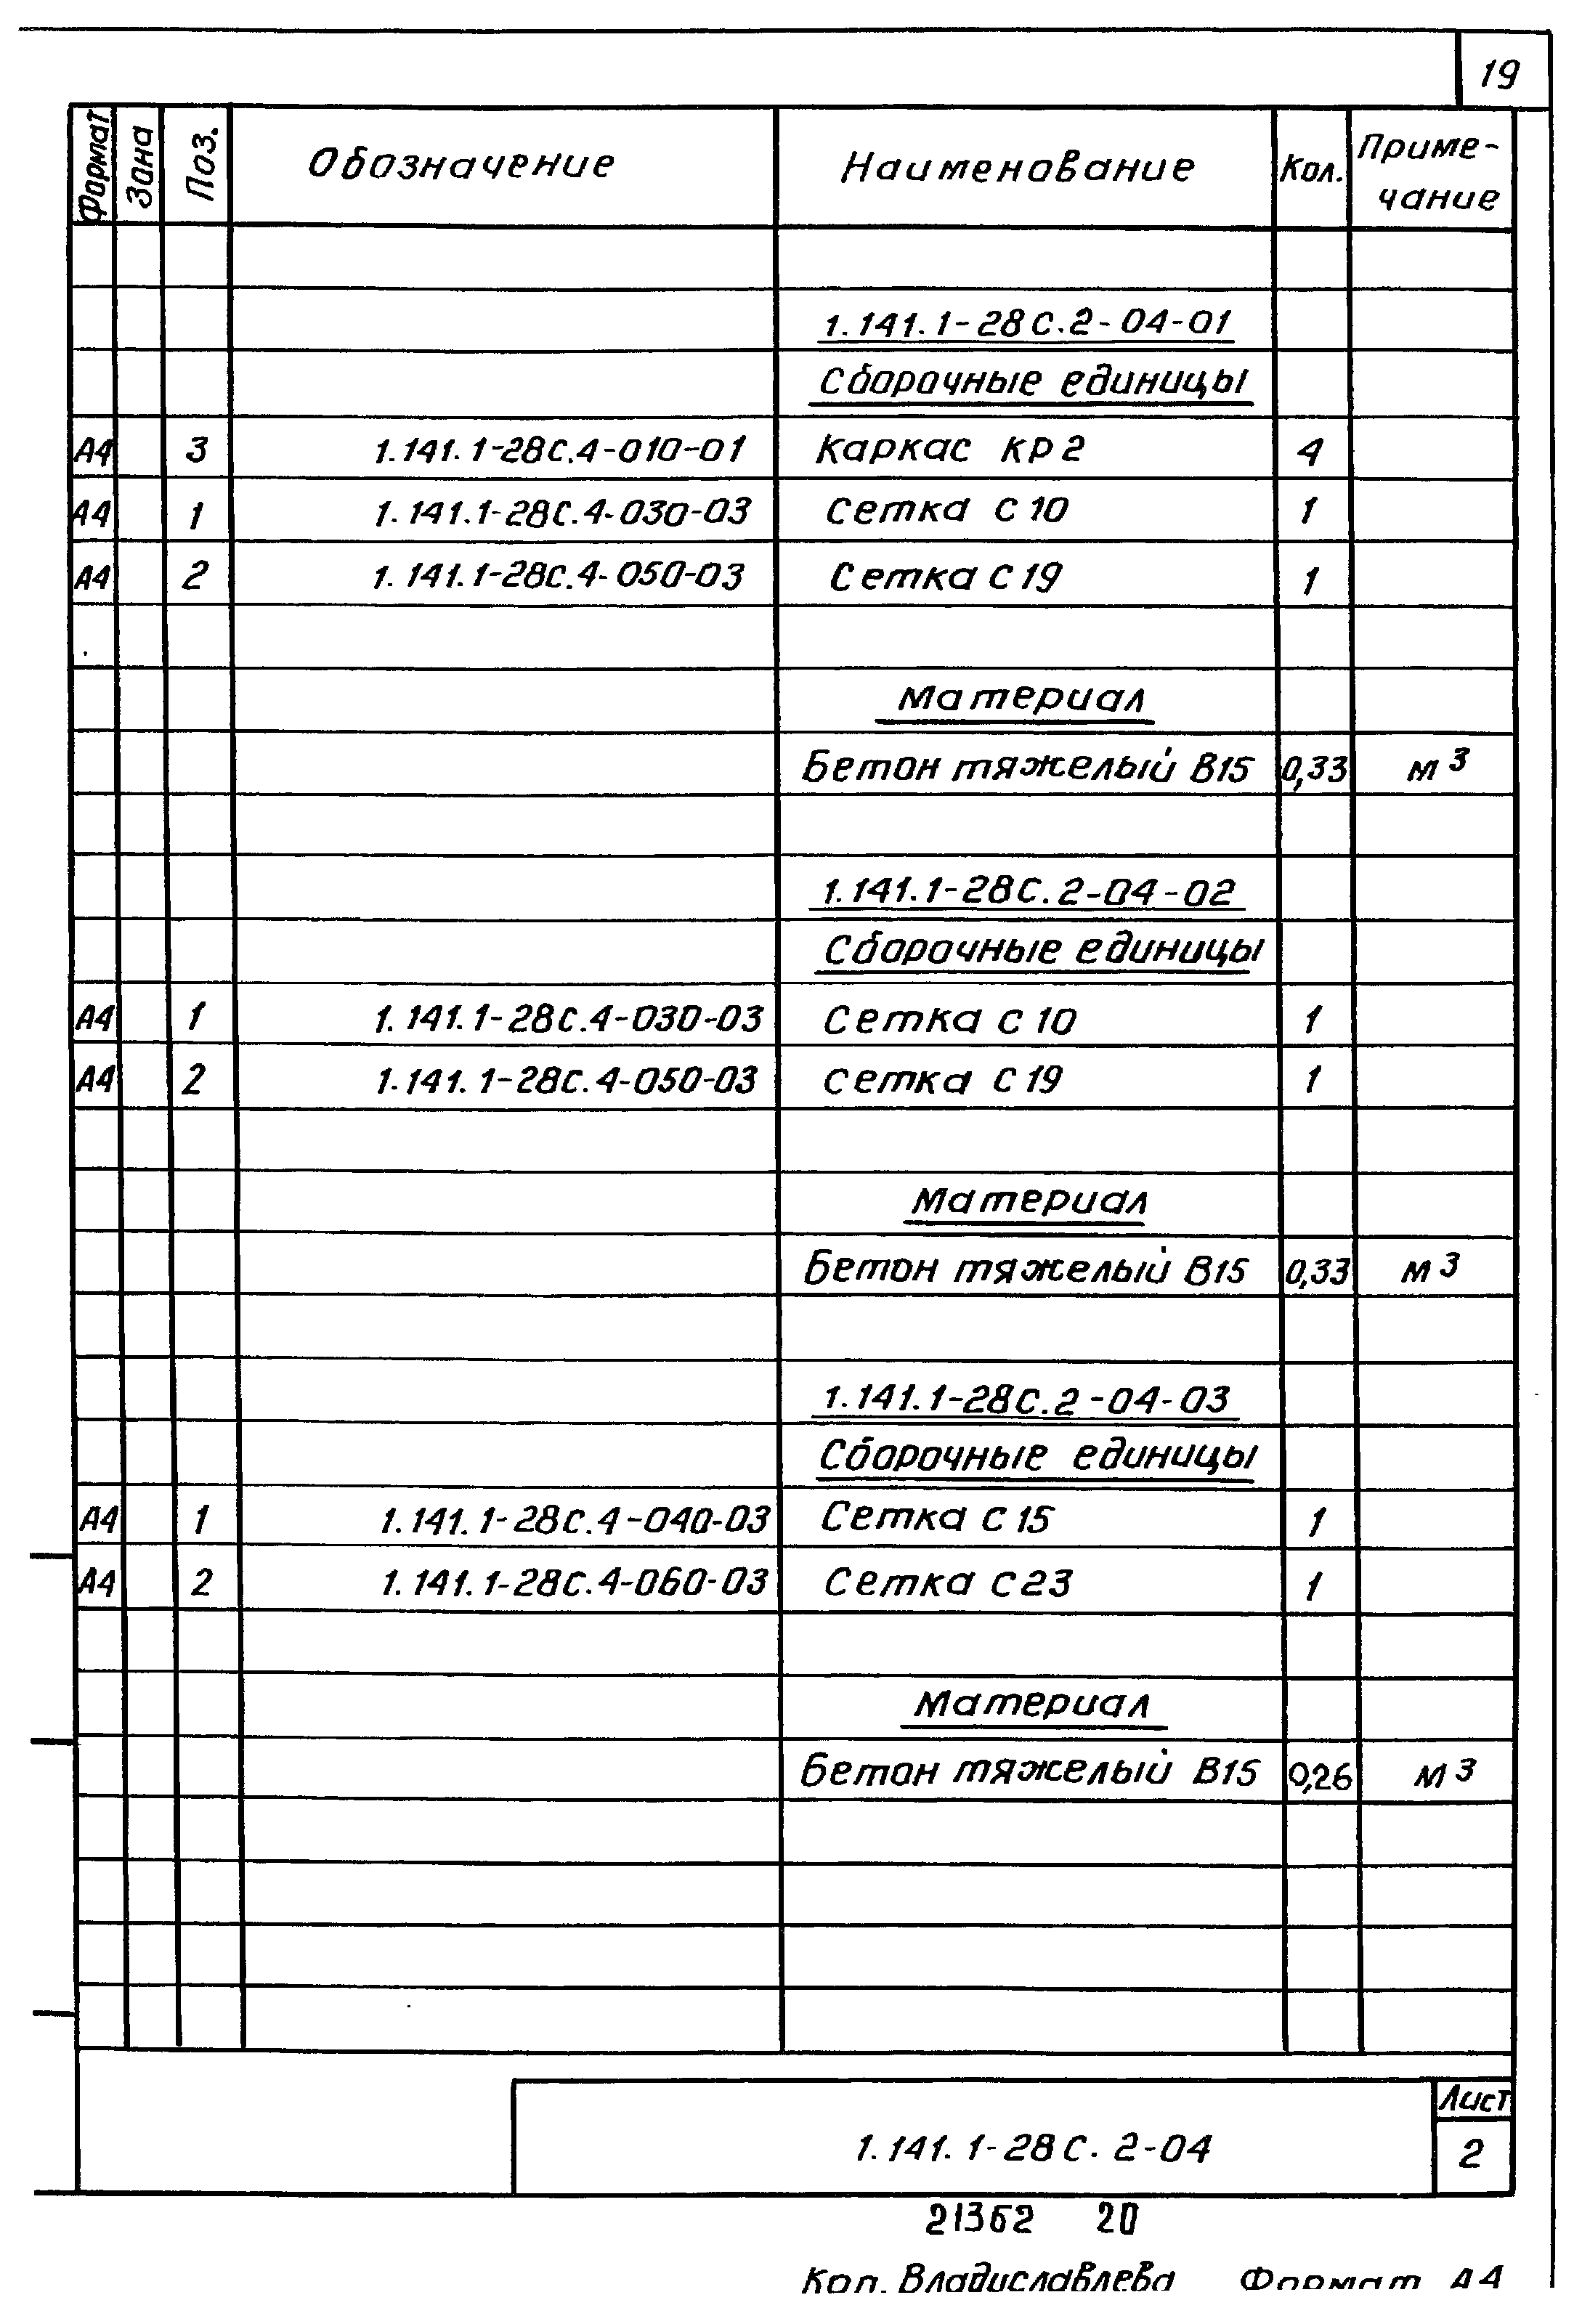 19
Формат Зона Поз. Обозначение Наименование Кол. Приме-
чание
1.141.1-28С.2-04-01
Сборочные единицы
А4 3 1.141.1-28С.4-010-01 Каркас КР2 4
А4 1 1.141.1-28С.4-030-03 Сетка С10 1
А4 2 1.141.1-28С.4-050-03 Сетка С19 1
Материал
Бетон тяжелый В15 0,33 м³
1.141.1-28С.2-04-02
Сборочные единицы
А4 1 1.141.1-28С.4-030-03 Сетка С10 1
А4 2 1.141.1-28С.4-050-03 Сетка С19 1
Материал
Бетон тяжелый В15 0,33 м³
1.141.1-28С.2-04-03
Сборочные единицы
А4 1 1.141.1-28С.4-040-03 Сетка С15 1
А4 2 1.141.1-28С.4-060-03 Сетка С23 1
Материал
Бетон тяжелый В15 0,26 м³
Лист
1.141.1-28С.2-04 2
21362 20
Коп. Владиславлева Формат А4